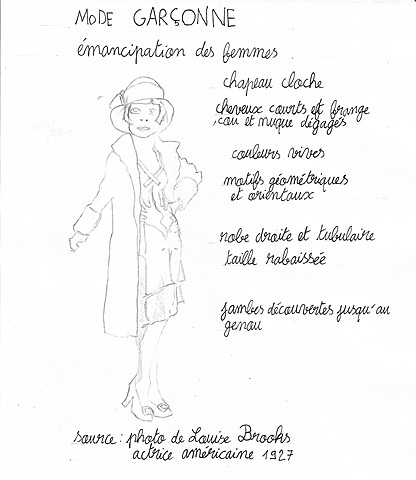 MODE GARÇONNE
émancipation des femmes
chapeau cloche
cheveux courts et frange
, cou et nuque dégagés
couleurs vives
motifs géométriques
et orientaux
robe droite et tubulaire
taille rabaissée
jambes découvertes jusqu'au
genou
source : photo de Louise Brooks
actrice américaine 1927